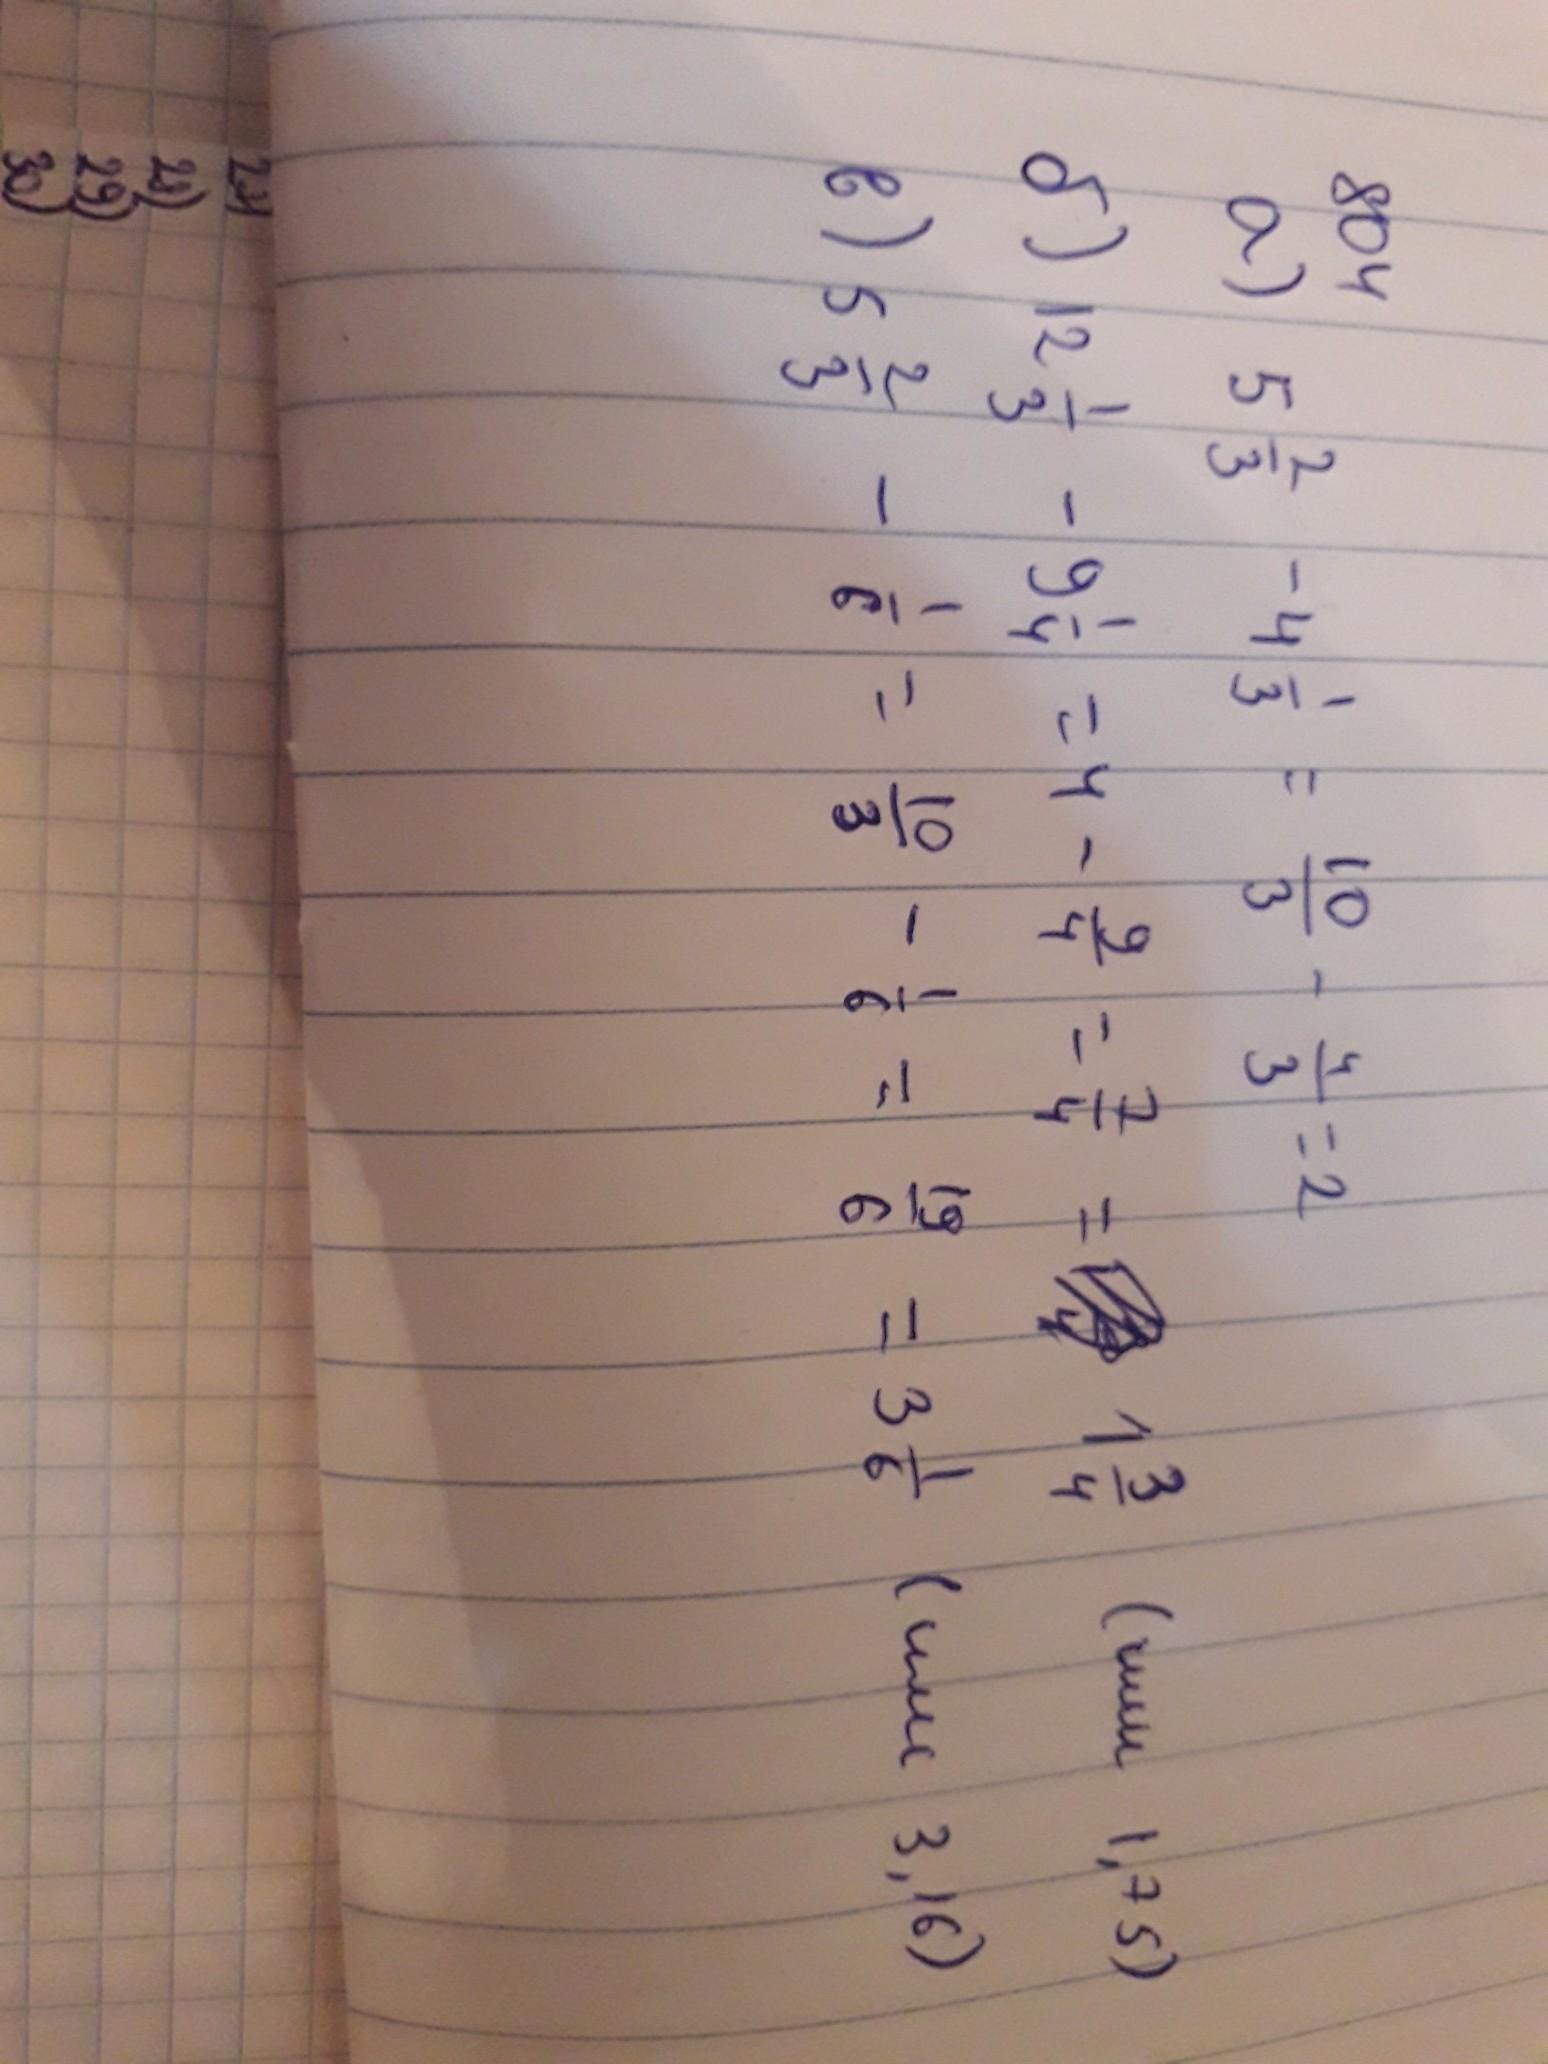 804
а) 5 2/3 - 4 1/3 = 10/3 - 4/3 = 2
б) 12 1/3 - 9 1/4 = 4 - 9/4 = 7/4 = 1 3/4 (или 1,75)
в) 5 2/3 - 1/6 = 10/3 - 1/6 = 19/6 = 3 1/6 (или 3,16)
29)
30)